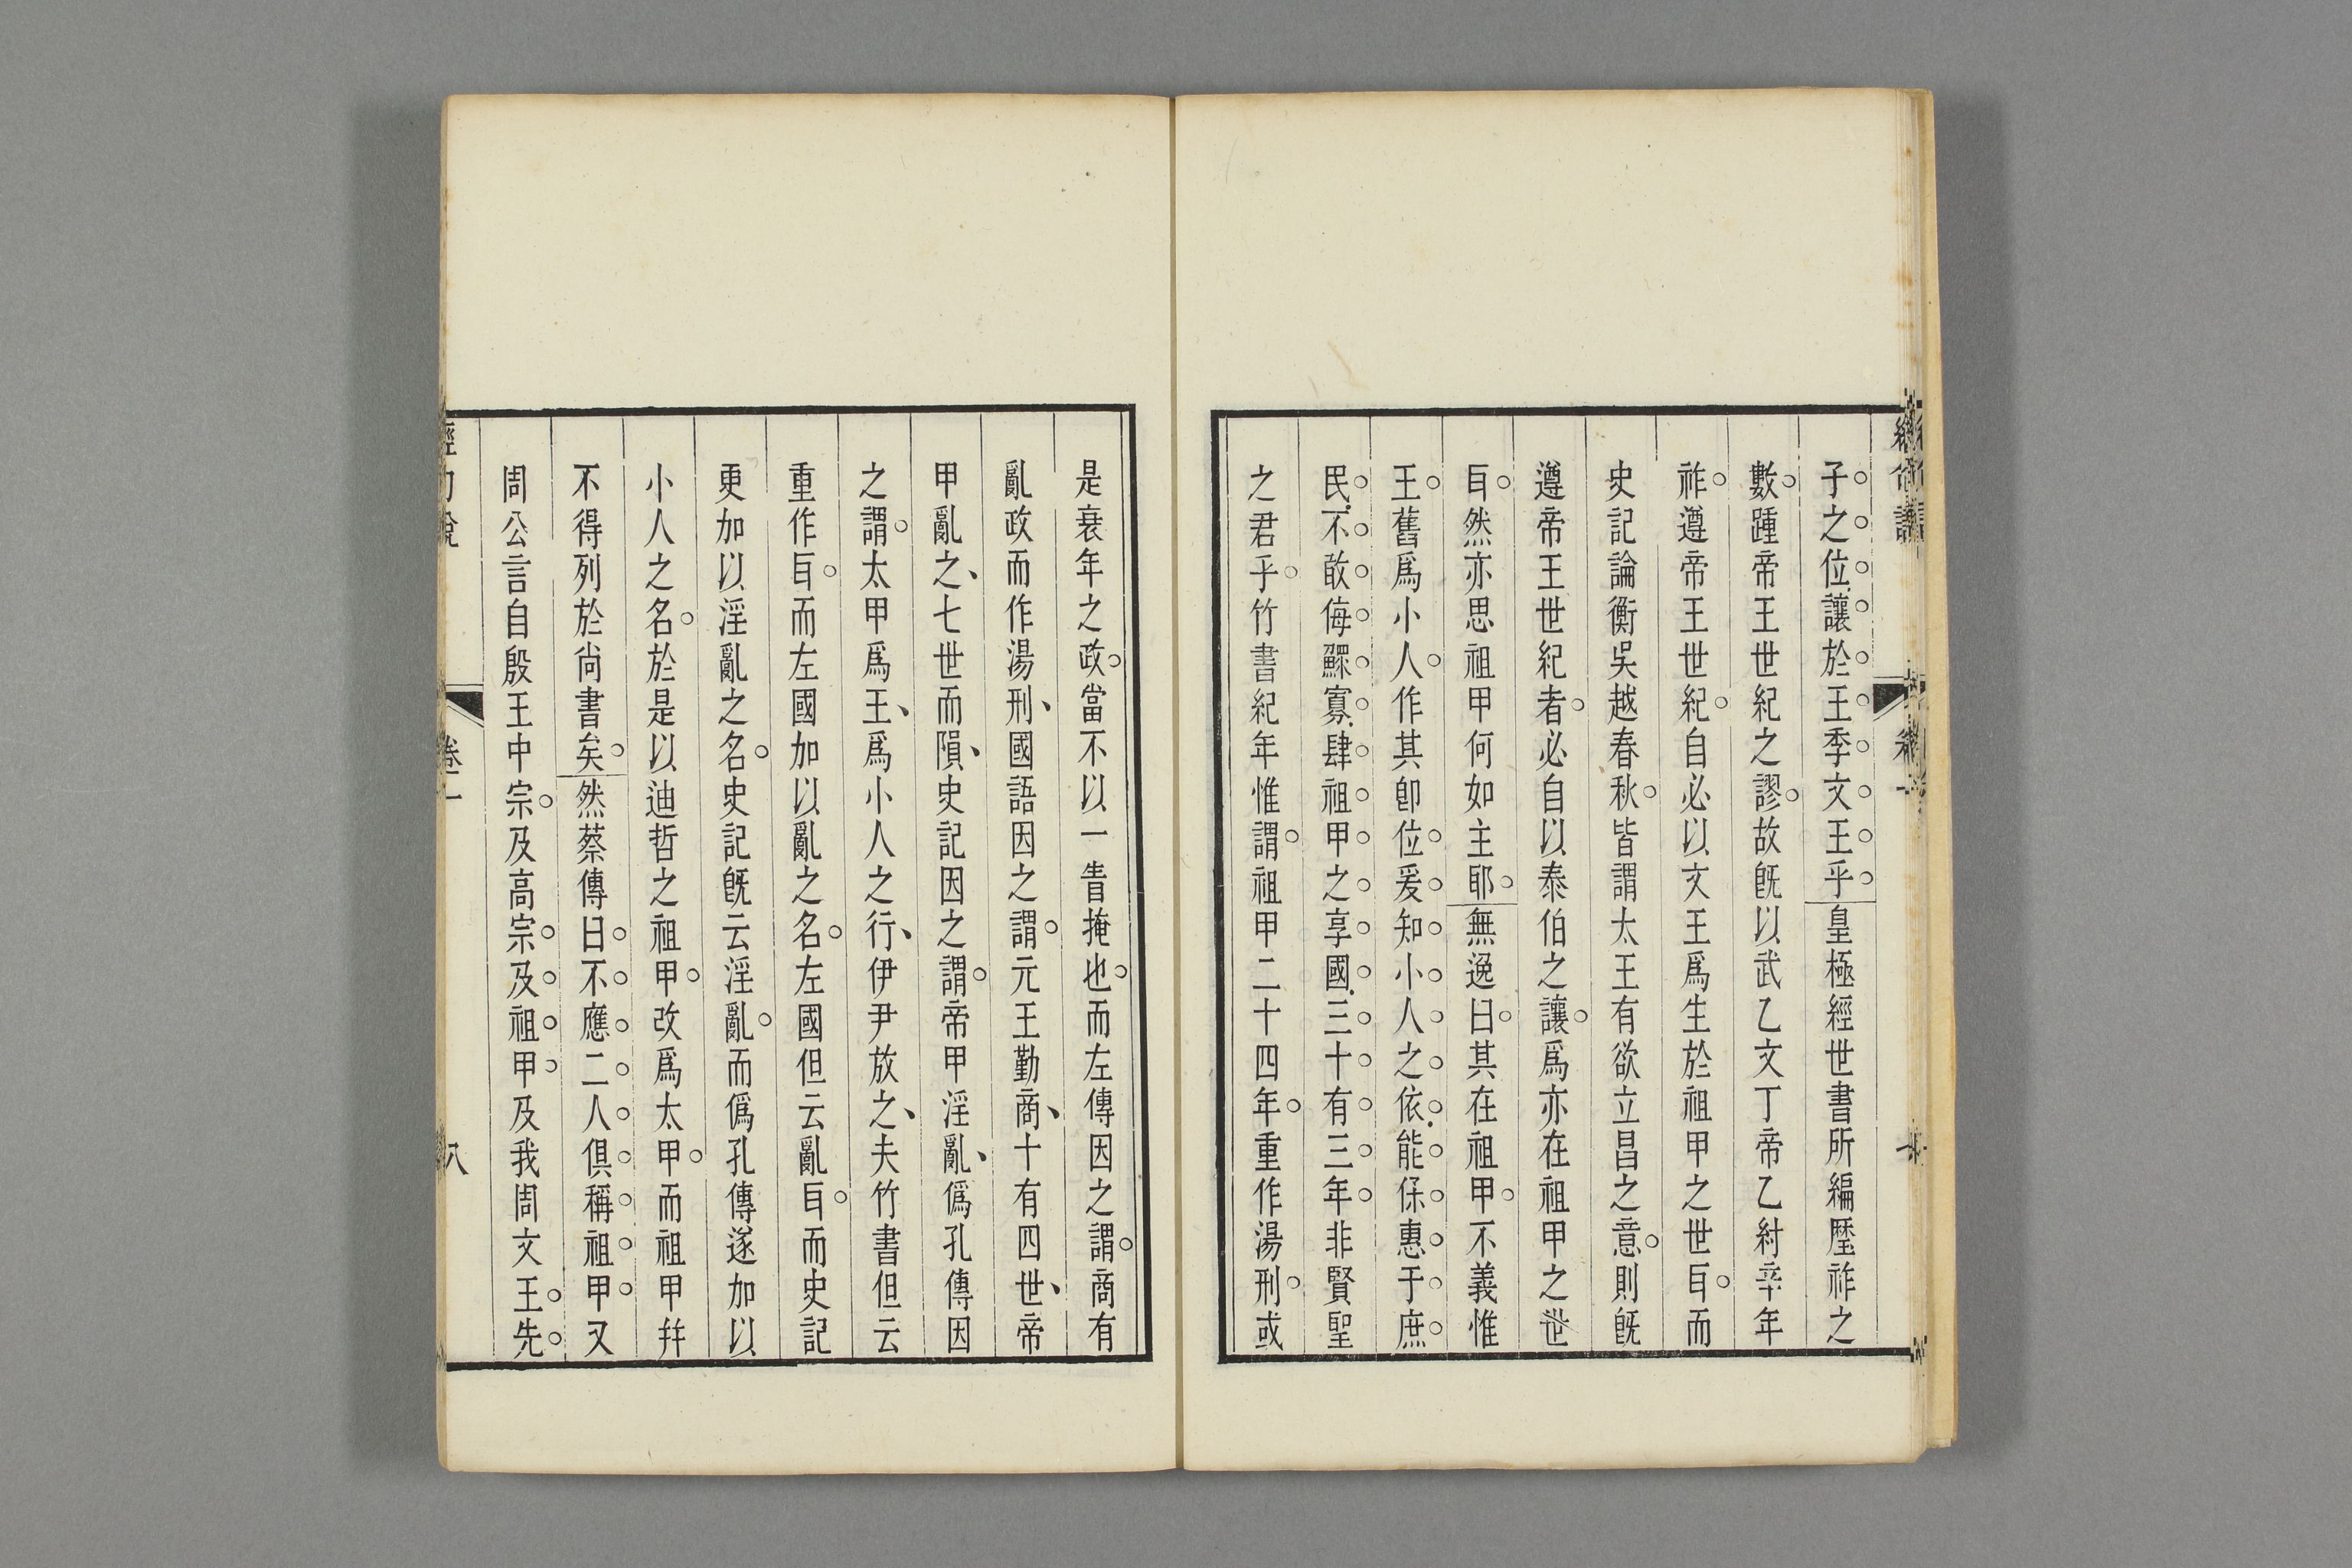 子之位讓於王季文王乎皇極經世書所編歷祚之
數踵帝王世紀之謬故旣以武乙文丁帝乙紂辛年
祚遵帝王世紀自必以文王爲生於祖甲之世㠯而
史記論衡吳越春秋皆謂太王有欲立昌之意則旣
遵帝王世紀者必自以泰伯之讓爲亦在祖甲之世
㠯然亦思祖甲何如主耶無逸曰其在祖甲不義惟
王舊爲小人作其卽位爰知小人之依能保惠于庶
民不敢侮鰥寡肆祖甲之享國三十有三年非賢聖
之君乎竹書紀年惟謂祖甲二十四年重作湯刑或
是衰年之政當不以一眚掩也而左傳因之謂商有
亂政而作湯刑國語因之謂元王勤商十有四世帝
甲亂之七世而隕史記因之謂帝甲淫亂僞孔傳因
之謂太甲爲王爲小人之行伊尹放之夫竹書但云
重作㠯而左國加以亂之名左國但云亂㠯而史記
更加以淫亂之名史記旣云淫亂而僞孔傳遂加以
小人之名於是以迪哲之祖甲改爲太甲而祖甲幷
不得列於尚書矣然蔡傳曰不應二人俱稱祖甲又
周公言自殷王中宗及高宗及祖甲及我周文王先
卷一
八